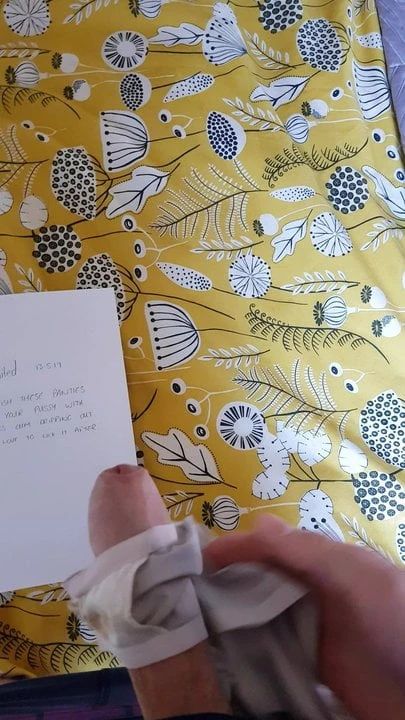 ited 12.5.19
ISH THESE PANTIES
YOUR PUSSY WITH
CUM DRIPPING OUT
LOVE TO LICK IT AFTER